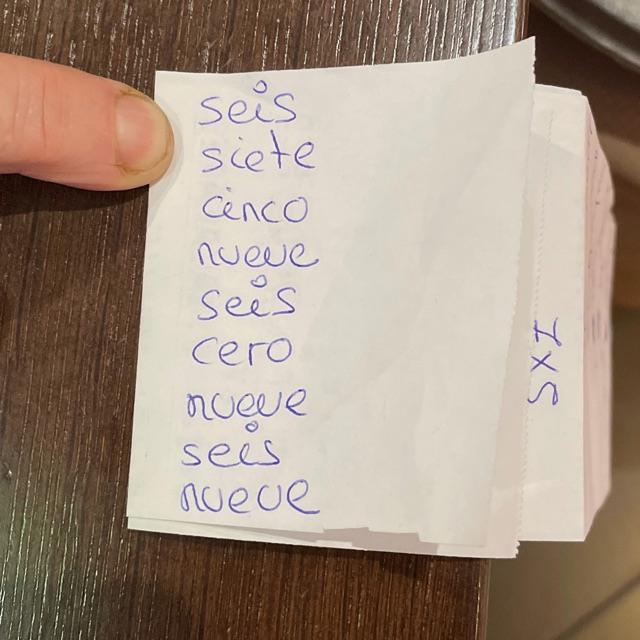 seis
siete
cinco
nueve
seis
cero
nueve
seis
nueve
5x1